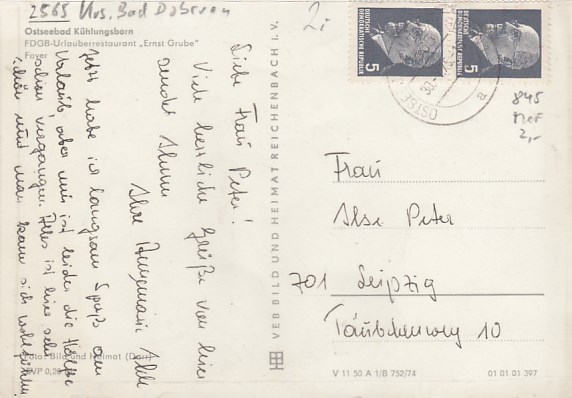 2565 Krs. Bad Doberan
2,-
Ostseebad Kühlungsborn
FDGB-Urlauberrestaurant „Ernst Grube“
Foyer
Liebe Frau Peter!
Viele herzliche Grüße von hier
sendet Ihnen
Ihre Annemarie
Jetzt habe ich langsam Spaß am
Urlaub, aber nun ist leider die Hälfte
schon vergangen. Alles ist hier sehr
schön und man kann sich wohlfühlen
Foto: Bild und Heimat (Darr)
EVP 0,20
VEB BILD UND HEIMAT REICHENBACH I. V.
DEUTSCHE DEMOKRATISCHE REPUBLIK
5
DEUTSCHE DEMOKRATISCHE REPUBLIK
5
OSTSE
30.
a
845
MeF
2,-
Frau
Ilse Peter
701 Leipzig
Täubchenweg 10
V 11 50 A 1/B 752/74
01 01 01 397